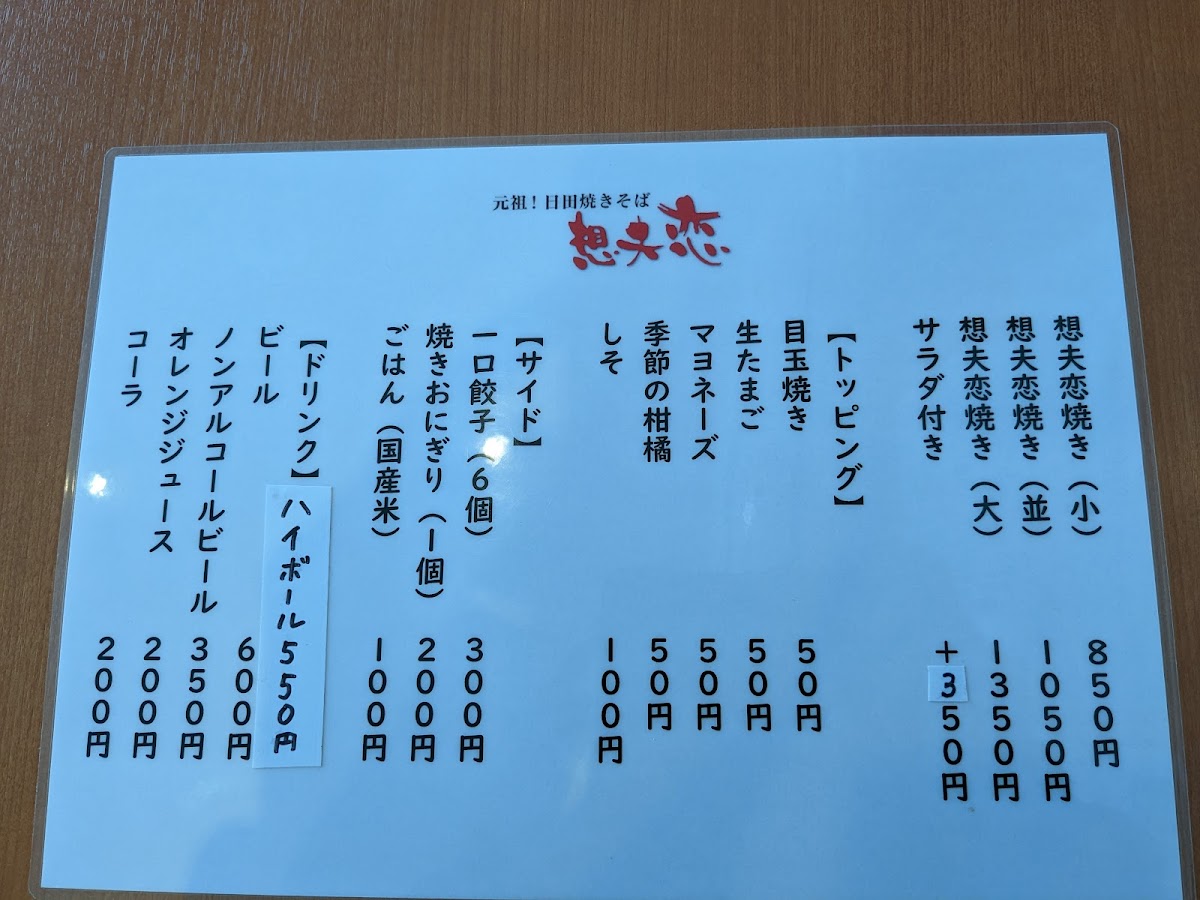 元祖!日田焼きそば
想夫恋
想夫恋焼き(小) 850円
想夫恋焼き(並) 1050円
想夫恋焼き(大) 1350円
サラダ付き +350円
【トッピング】
目玉焼き 50円
生たまご 50円
マヨネーズ 50円
季節の柑橘 50円
しそ 100円
【サイド】
一口餃子(6個) 300円
焼きおにぎり(1個) 200円
ごはん(国産米) 100円
【ドリンク】
ハイボール 550円
ビール 600円
ノンアルコールビール 350円
オレンジジュース 200円
コーラ 200円